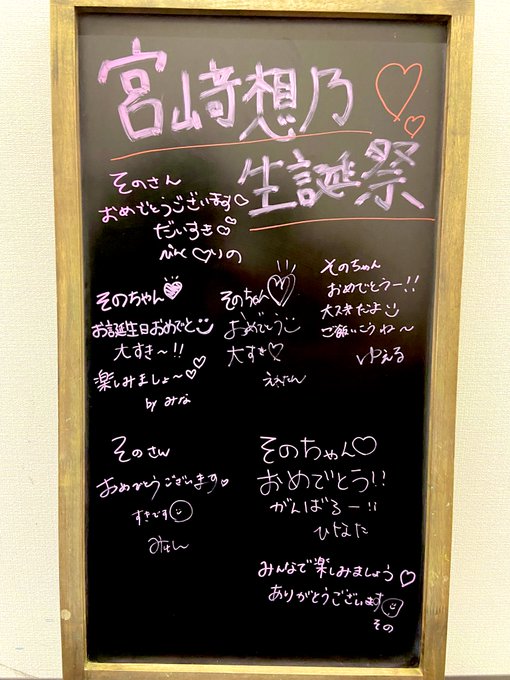 宮崎想乃♡♡
生誕祭
そのさん
おめでとうございます♡
だいすき♡♡
ぴんく♡りの
そのちゃん♡
お誕生日おめでと
大すき〜!!
楽しみましょ〜♡♡
by みな
そのちゃん♡
おめでとう
大すき♡
そのちゃん
おめでとうー!!
大スキだよ
ご飯いこうね〜
ゆぇる
そのさん
おめでとうございます♡
すきです
そのちゃん♡
おめでとう!!
がんばるー!!
ひなた
みんなで楽しみましょう♡
ありがとうございます
その